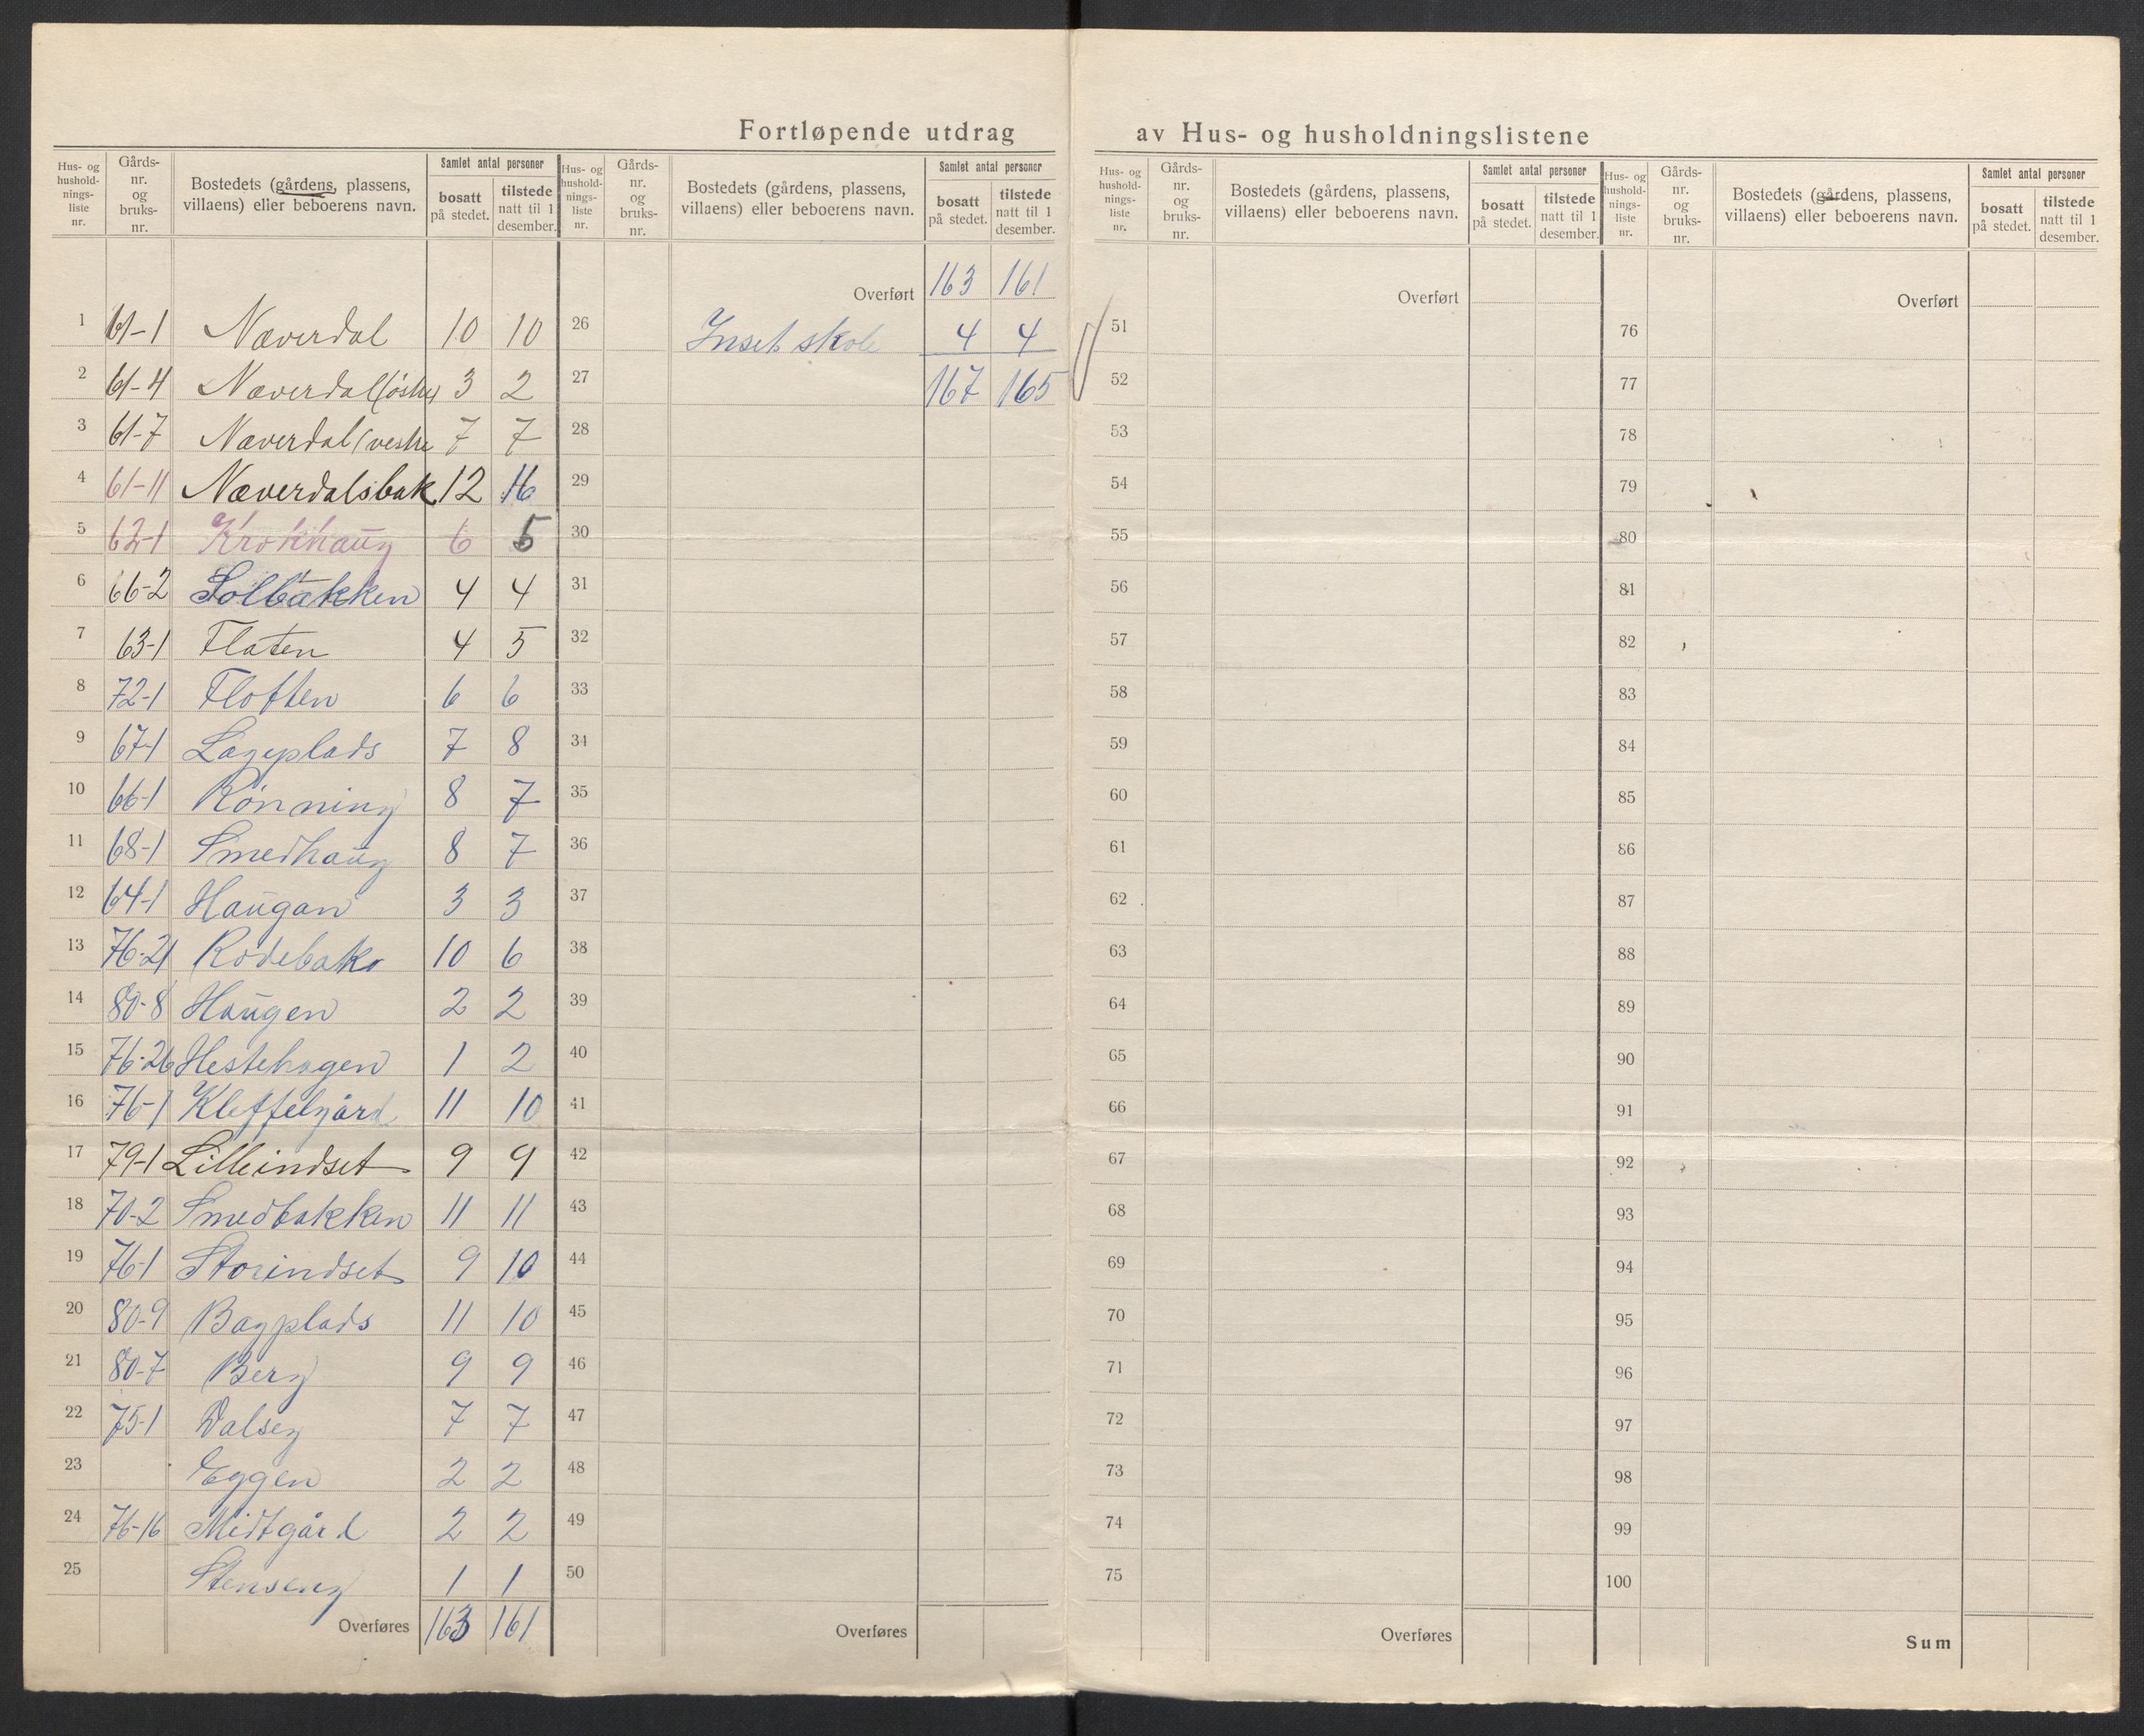 Fortløpende utdrag av Hus- og husholdningslistene
Hus- og hushold-nings-liste nr.
Gårds-nr. og bruks-nr.
Bostedets (gårdens, plassens, villaens) eller beboerens navn.
Samlet antal personer
bosatt på stedet.
tilstede natt til 1 desember.
1 61-1 Næverdal 10 10
2 61-4 Næverdal (østre 3 2
3 61-7 Næverdal (vestre 7 7
4 61-11 Næverdalsbak 12 16
5 62-1 Krokhaug 6 5
6 66-2 Solbakken 4 4
7 63-1 Flaten 4 5
8 72-1 Floften 6 6
9 67-1 Lageplads 7 8
10 66-1 Rönning 8 7
11 68-1 Smedhaug 8 7
12 64-1 Haugan 3 3
13 76-21 Rodebakr 10 6
14 80-8 Haugen 2 2
15 76-26 Hestehagen 1 2
16 76-1 Kleffelgård 11 10
17 79-1 Lilleindset 9 9
18 70-2 Smedbakken 11 11
19 76-1 Storindset 9 10
20 80-9 Bagplads 11 10
21 80-7 Berg 9 9
22 75-1 Dalseg 7 7
23 Eggen 2 2
24 76-16 Midtgård 2 2
25 Stenseng 1 1
Overføres 163 161
Hus- og hushold-nings-liste nr.
Gårds-nr. og bruks-nr.
Bostedets (gårdens, plassens, villaens) eller beboerens navn.
Samlet antal personer
bosatt på stedet.
tilstede natt til 1 desember.
Overført 163 161
26 Inset skole 4 4
27 167 165
28
29
30
31
32
33
34
35
36
37
38
39
40
41
42
43
44
45
46
47
48
49
50
Overføres
Hus- og hushold-nings-liste nr.
Gårds-nr. og bruks-nr.
Bostedets (gårdens, plassens, villaens) eller beboerens navn.
Samlet antal personer
bosatt på stedet.
tilstede natt til 1 desember.
Overført
51
52
53
54
55
56
57
58
59
60
61
62
63
64
65
66
67
68
69
70
71
72
73
74
75
Overføres
Hus- og hushold-nings-liste nr.
Gårds-nr. og bruks-nr.
Bostedets (gårdens, plassens, villaens) eller beboerens navn.
Samlet antal personer
bosatt på stedet.
tilstede natt til 1 desember.
Overført
76
77
78
79
80
81
82
83
84
85
86
87
88
89
90
91
92
93
94
95
96
97
98
99
100
Sum